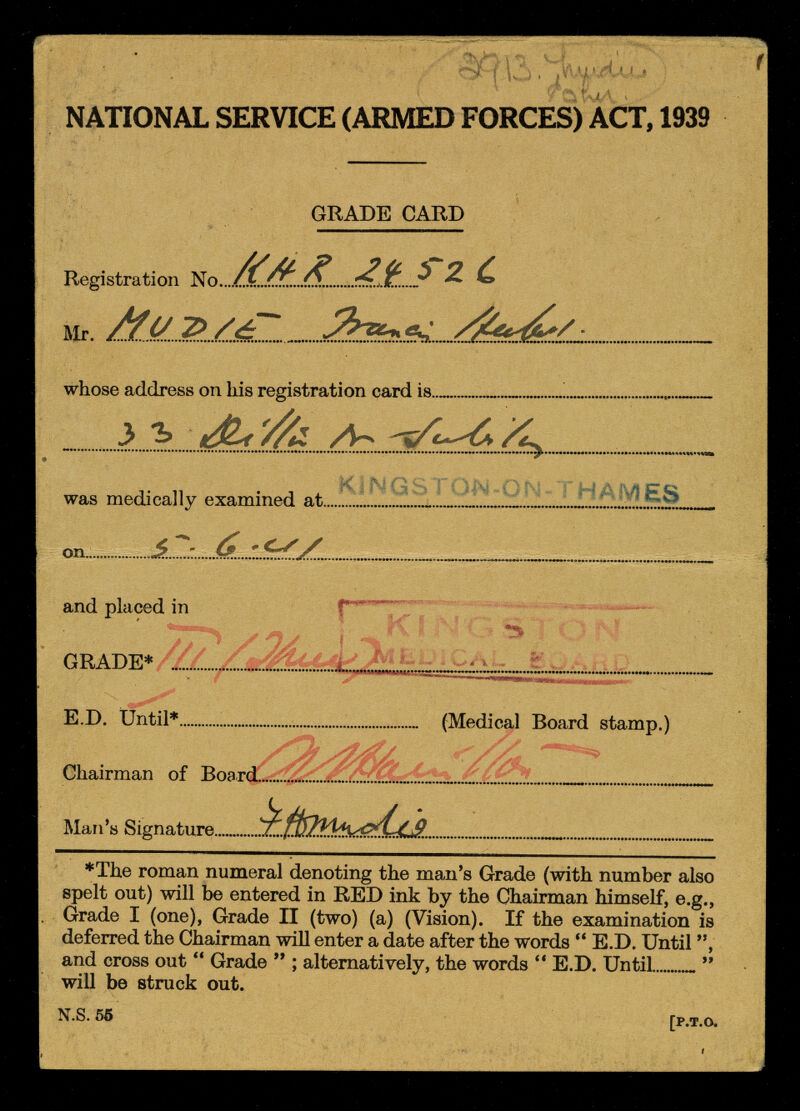 3913.
NATIONAL SERVICE (ARMED FORCES) ACT, 1939
GRADE CARD
Registration No. KHR 24526
Mr. MUDIE Francis Herbert
whose address on his registration card is
33
was medically examined at KINGSTON-ON-THAMES
on 5-6-41
and placed in
KINGSTON
GRADE* III (Three) MEDICAL BOARD
E.D. Until* (Medical Board stamp.)
Chairman of Board Hamilton
Man's Signature FHMudie
*The roman numeral denoting the man's Grade (with number also
spelt out) will be entered in RED ink by the Chairman himself, e.g.,
Grade I (one), Grade II (two) (a) (Vision). If the examination is
deferred the Chairman will enter a date after the words " E.D. Until ",
and cross out " Grade " ; alternatively, the words " E.D. Until........... "
will be struck out.
N.S. 55
[P.T.O.